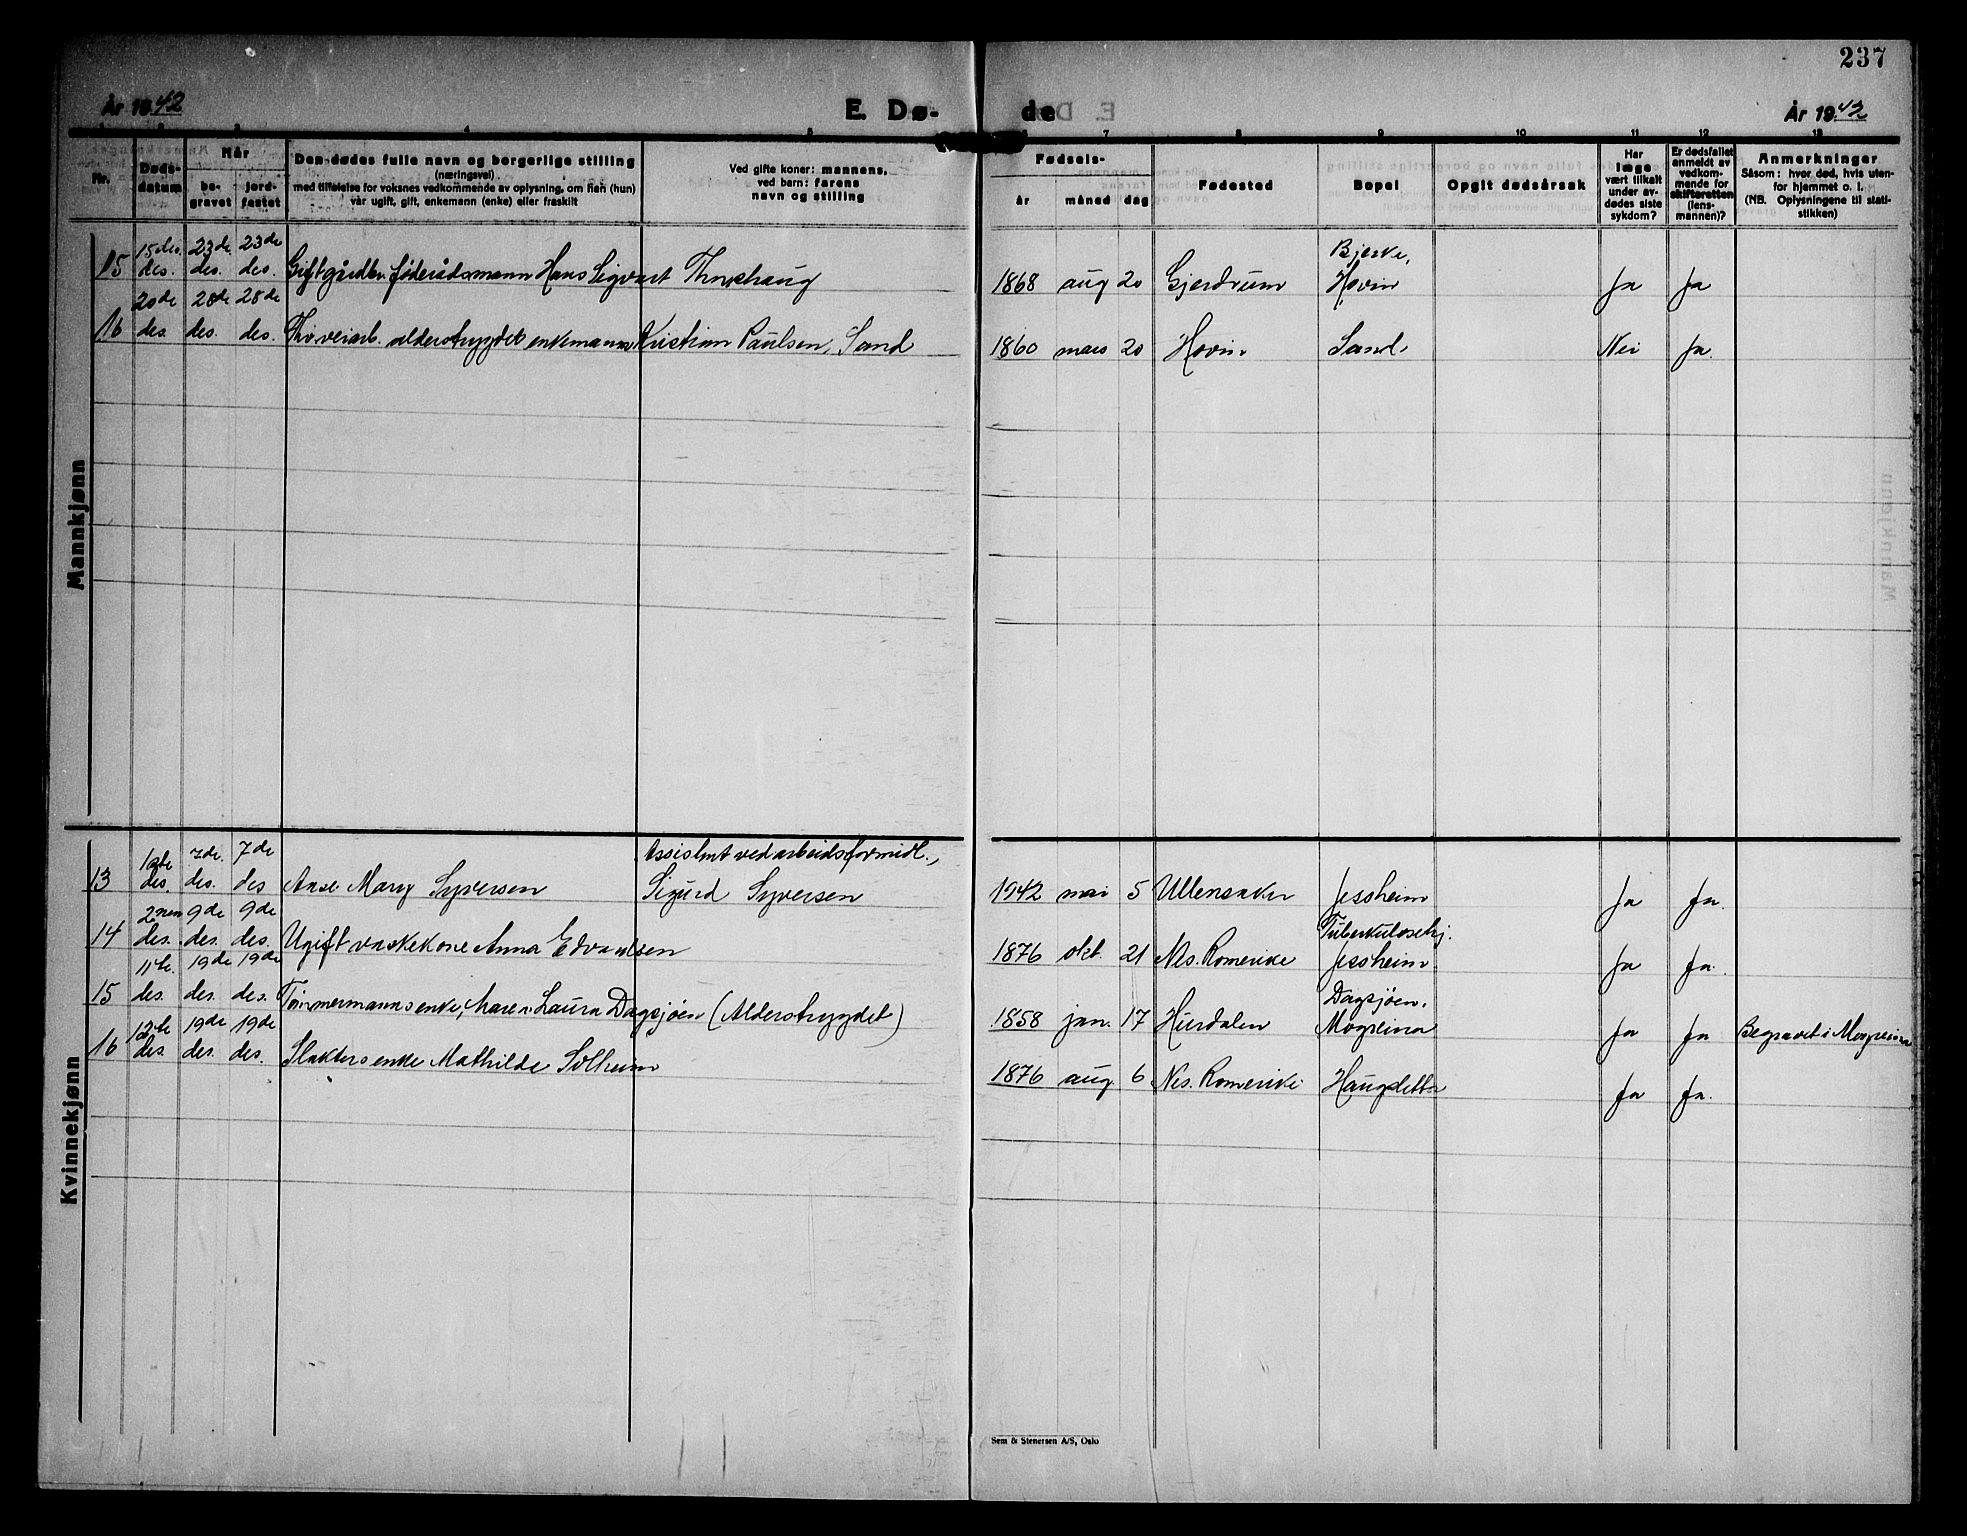 237
År 1942 E. Dø- de År 1942
1 2 3 4 5 6 7 8 9 10 11 12 13
Nr.
Døds-
datum
Når
be-
gravet
jord-
festet
Den dødes fulle navn og borgerlige stilling
(næringsvei)
med tilføielse for voksnes vedkommende av oplysning, om han (hun)
var ugift, gift, enkemann (enke) eller fraskilt
Ved gifte koner: mannens,
ved barn: farens
navn og stilling
Fødsels-
år måned dag
Fødested
Bopel
Opgit dødsårsak
Har
læge
vært tilkalt
under av-
dødes siste
sykdom?
Er dødsfallet
anmeldt av
vedkom-
mende for
skifteretten
(lens-
mannen)?
Anmerkninger
Såsom: hvor død, hvis uten-
for hjemmet o. l.
(NB. Oplysningene til stati-
stikken)
Mannkjønn
15de. 23de 23de Bjerke,
15 des. des. des. Gift gårdbr. føderådsmann Hans Sigvart 1868 aug 20 Gjerdrum Hovin Ja Ja
20de 28de 28de
16 des. des. des. alderstrygdet enkemann Kristian Paulsen, Sand 1860 mars 20 Hovin Sand. Nei Ja.
Kvinnekjønn
1ste 7de. 7de Assistent ved arbeidsformidl.,
13 des. des. des Anse Mary Syversen Sigurd Syversen 1942 mai 5 Ullensaker Jessheim Ja Ja.
2nen 9de 9de Tuberkulosehj.
14 des. des. des. Ugift vaskekone Anna Edvardsen 1876 okt. 21 Nes. Romerike Jessheim. Ja Ja.
11te. 19de 19de Dagsjøen,
15 des. des. des. Tømmermanns enke, Maren Laura Dagsjøen (Alderstrygdet) 1858 jan. 17 Hurdalen Mogreina Ja Ja Begravet i Mogreina
12te 19de 19de
16 des. des. des. Slakters enke Mathilde Solheim 1876 aug. 6 Nes. Romerike Ja Ja.
Sem & Stenersen A/S, Oslo